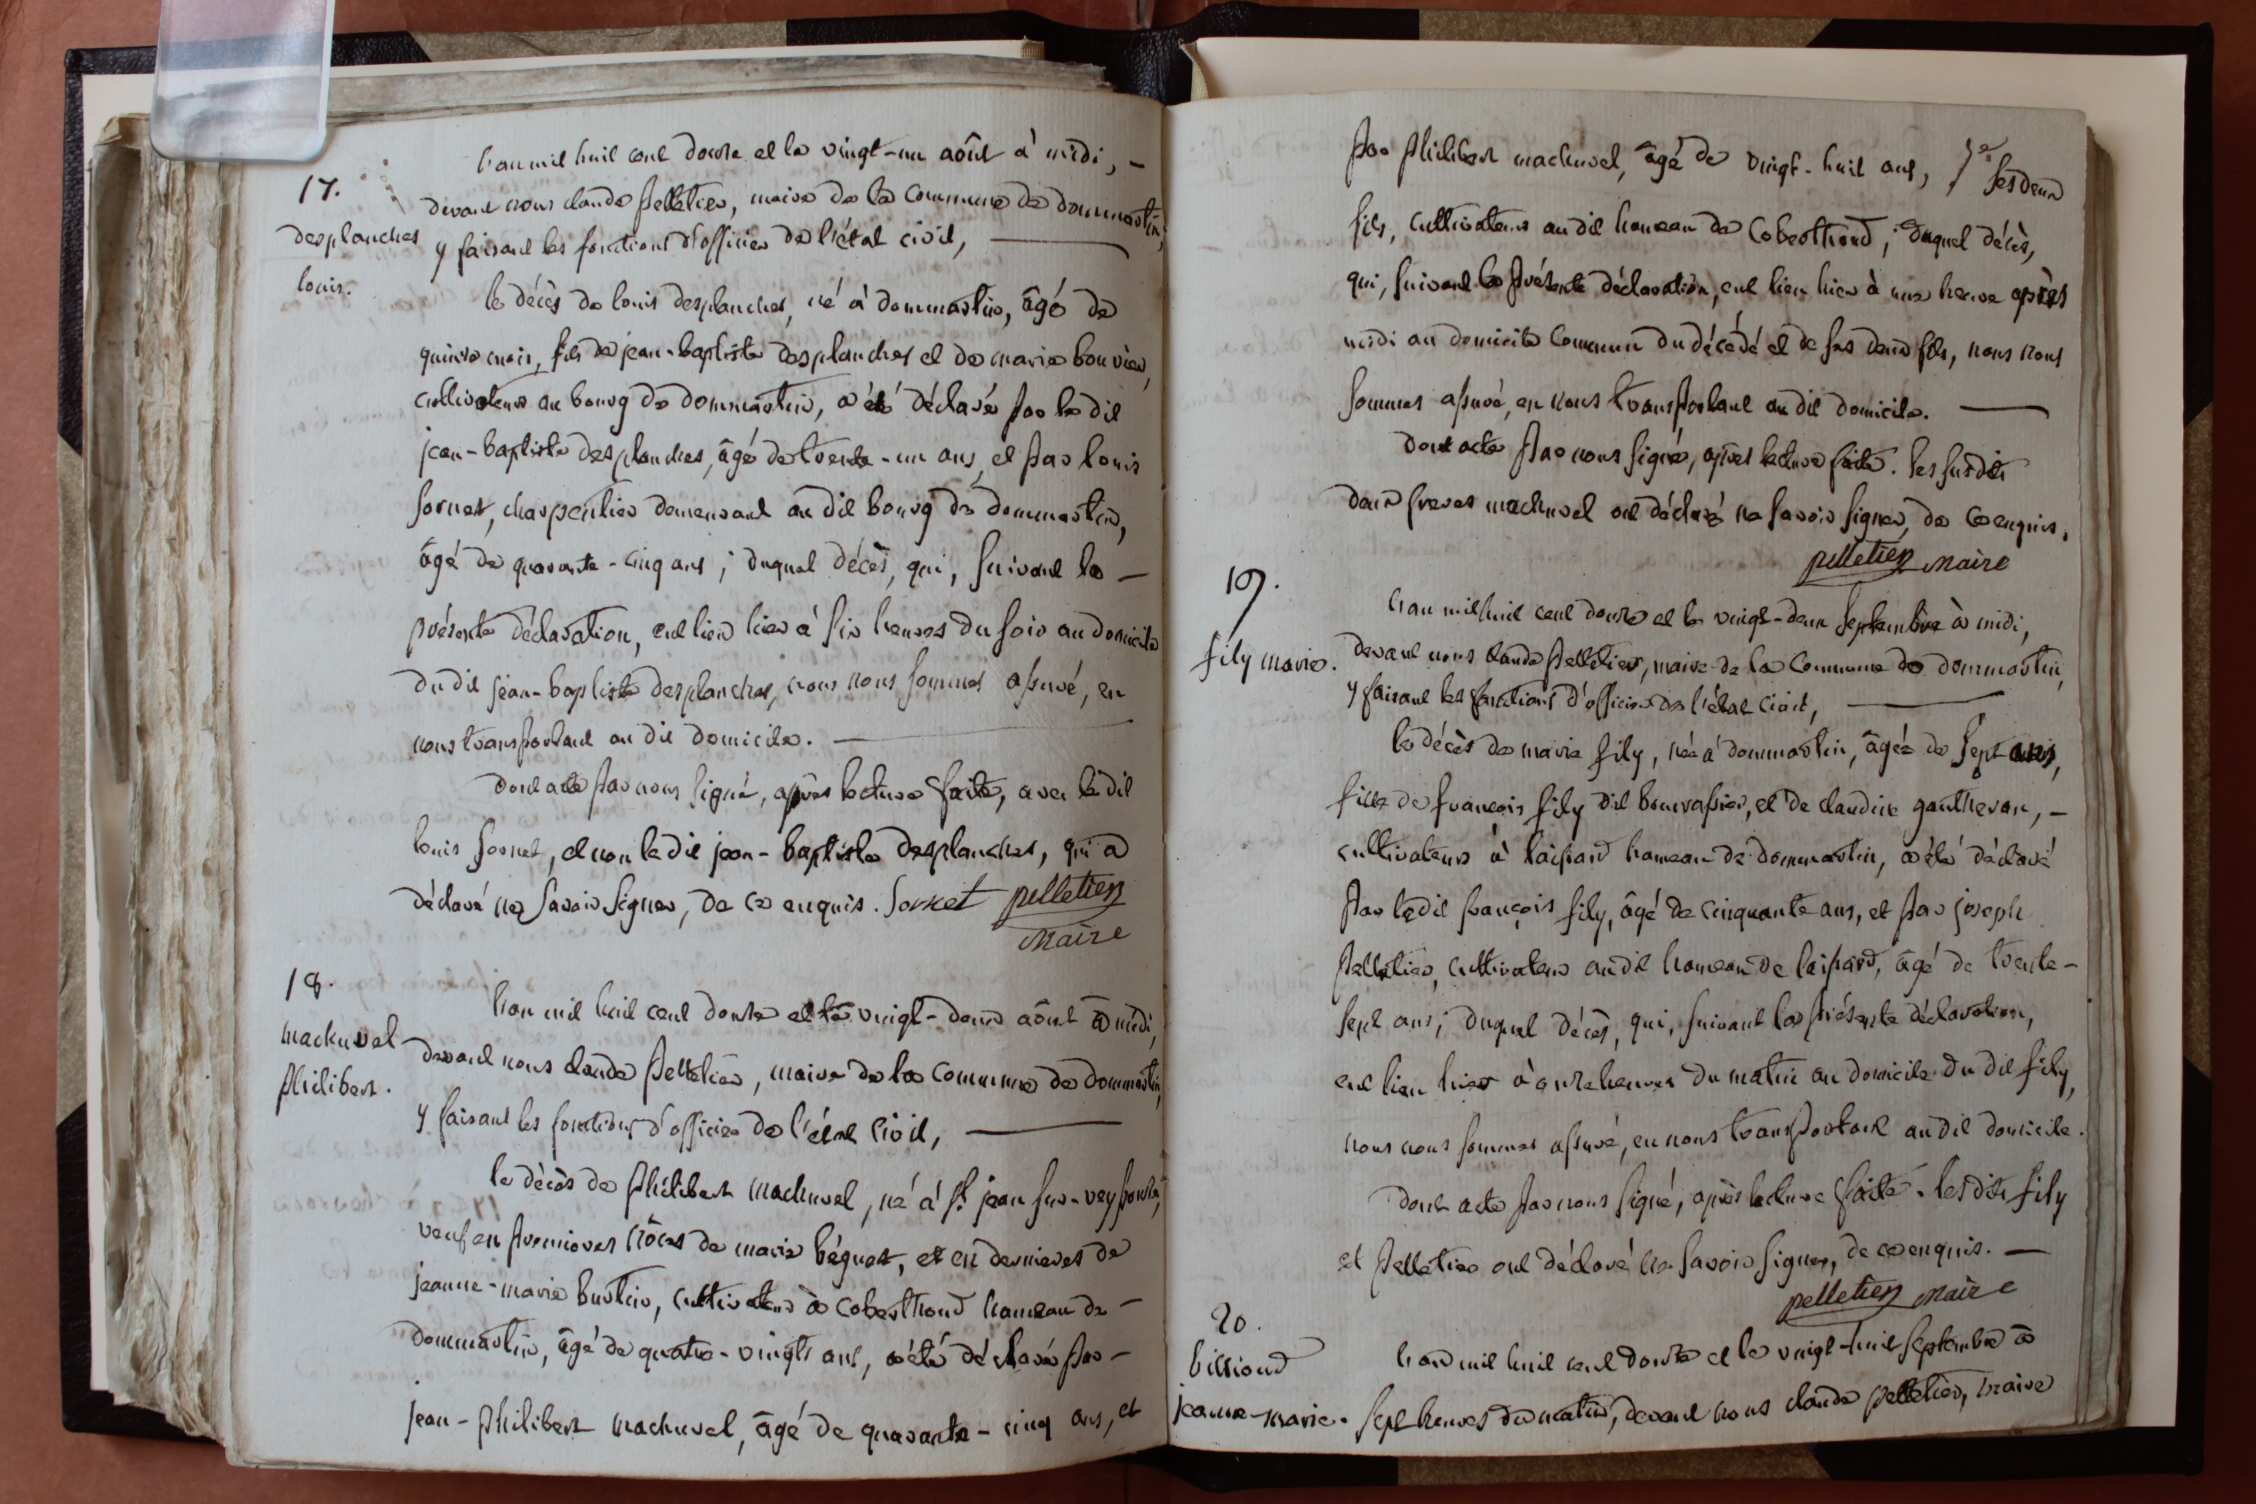 17.
desplanches
louis.
l'an mil huit cent douze et le vingt-un août à midi, —
devant nous claude pelletier, maire de la commune de dommartin,
y faisant les fonctions d'officier de l'état civil, —
le décès de louis desplanches, né à dommartin, âgé de
quinze mois, fils de jean-baptiste desplanches et de marie bouvier,
cultivateurs au bourg de dommartin, a été déclaré par le dit
jean-baptiste desplanches, âgé de trente-un ans, et par louis
sornet, charpentier demeurant au dit bourg de dommartin,
âgé de quarante-cinq ans ; duquel décès, qui, suivant la —
présente déclaration, eut lieu hier à six heures du soir au domicile
du dit jean-baptiste desplanches, nous nous sommes assuré, en
nous transportant au dit domicile. —
dont acte par nous signé, après lecture faite, avec le dit
louis sornet, et non le dit jean-baptiste desplanches, qui a
déclaré ne savoir signer, de ce enquis. Sornet pelletier
maire
18.
machuvel
philibert.
l'an mil huit cent douze et le vingt-deux août à midi,
devant nous claude pelletier, maire de la commune de dommartin,
y faisant les fonctions d'officier de l'état civil, —
le décès de philibert machuvel, né à st. jean sur-veyssouse,
veuf en premieres nôces de marie béguet, et en dernieres de
jeanne-marie burtin, cultivateur à coberthoud hameau de —
dommartin, âgé de quatre-vingts ans, a été déclaré par —
jean-philibert machuvel, âgé de quarante-cinq ans, et
par philibert machuvel, âgé de vingt-huit ans, ses deux
fils, cultivateurs au dit hameau de coberthoud ; duquel décès,
qui, suivant la présente déclaration, eut lieu hier à une heure après
midi au domicile commun du décédé et de ses deux fils, nous nous
sommes assuré, en nous transportant au dit domicile. —
dont acte par nous signé, après lecture faite. les susdits
deux freres machuvel ont déclaré ne savoir signer, de ce enquis.
pelletier maire
19.
fily marie.
l'an mil huit cent douze et le vingt-deux septembre à midi,
devant nous claude pelletier, maire de la commune de dommartin,
y faisant les fonctions d'officier de l'état civil, —
le décès de marie fily, née à dommartin, âgée de sept ans,
fille de françois fily dit bourrassier, et de claudine gautheron, —
cultivateurs à laissard hameau de dommartin, a été déclaré
par le dit françois fily, âgé de cinquante ans, et par joseph
pelletier, cultivateur au dit hameau de laissard, âgé de trente-
sept ans ; duquel décès, qui, suivant la présente déclaration,
eut lieu hier à onze heures du matin au domicile du dit fily,
nous nous sommes assuré, en nous transportant au dit domicile.
dont acte par nous signé, après lecture faite. les dits fily
et pelletier ont déclaré ne savoir signer, de ce enquis. —
pelletier maire
20.
billioud
jeanne-marie.
l'an mil huit cent douze et le vingt-huit septembre à
sept heures du matin, devant nous claude pelletier, maire